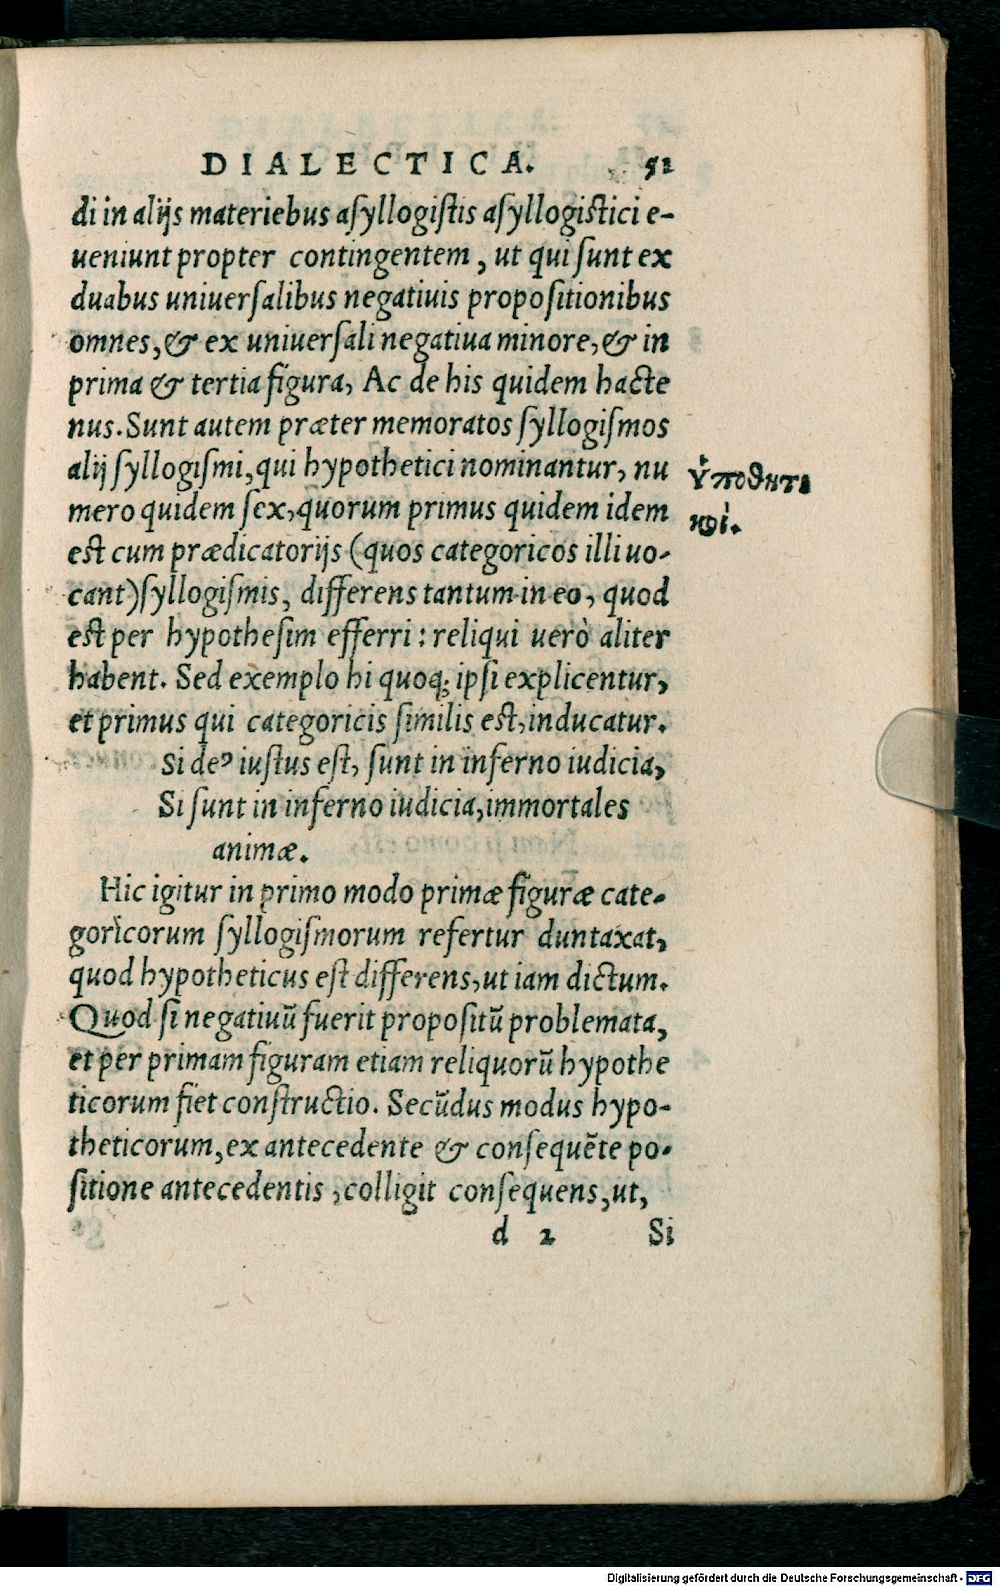 DIALECTICA. 52
di in alijs materiebus asyllogistis asyllogistici e-
ueniunt propter contingentem, ut qui sunt ex
duabus uniuersalibus negatiuis propositionibus
omnes, & ex uniuersali negatiua minore, & in
prima & tertia figura, Ac de his quidem hacte
nus. Sunt autem præter memoratos syllogismos
alij syllogismi, qui hypothetici nominantur, nu
mero quidem sex, quorum primus quidem idem
est cum prædicatorijs (quos categoricos illi uo-
cant) syllogismis, differens tantum in eo, quod
est per hypothesim efferri: reliqui uerò aliter
habent. Sed exemplo hi quoq; ipsi explicentur,
et primus qui categoricis similis est, inducatur.
Si deꝰ iustus est, sunt in inferno iudicia,
Si sunt in inferno iudicia, immortales
animæ.
Hic igitur in primo modo primæ figuræ cate-
goricorum syllogismorum refertur duntaxat,
quod hypotheticus est differens, ut iam dictum.
Quod si negatiuū fuerit propositū problemata,
et per primam figuram etiam reliquorū hypothe
ticorum fiet constructio. Secūdus modus hypo-
theticorum, ex antecedente & consequēte po-
sitione antecedentis, colligit consequens, ut,
d 2 Si
ὑποθητι
κοί.
Digitalisierung gefördert durch die Deutsche Forschungsgemeinschaft - DFG